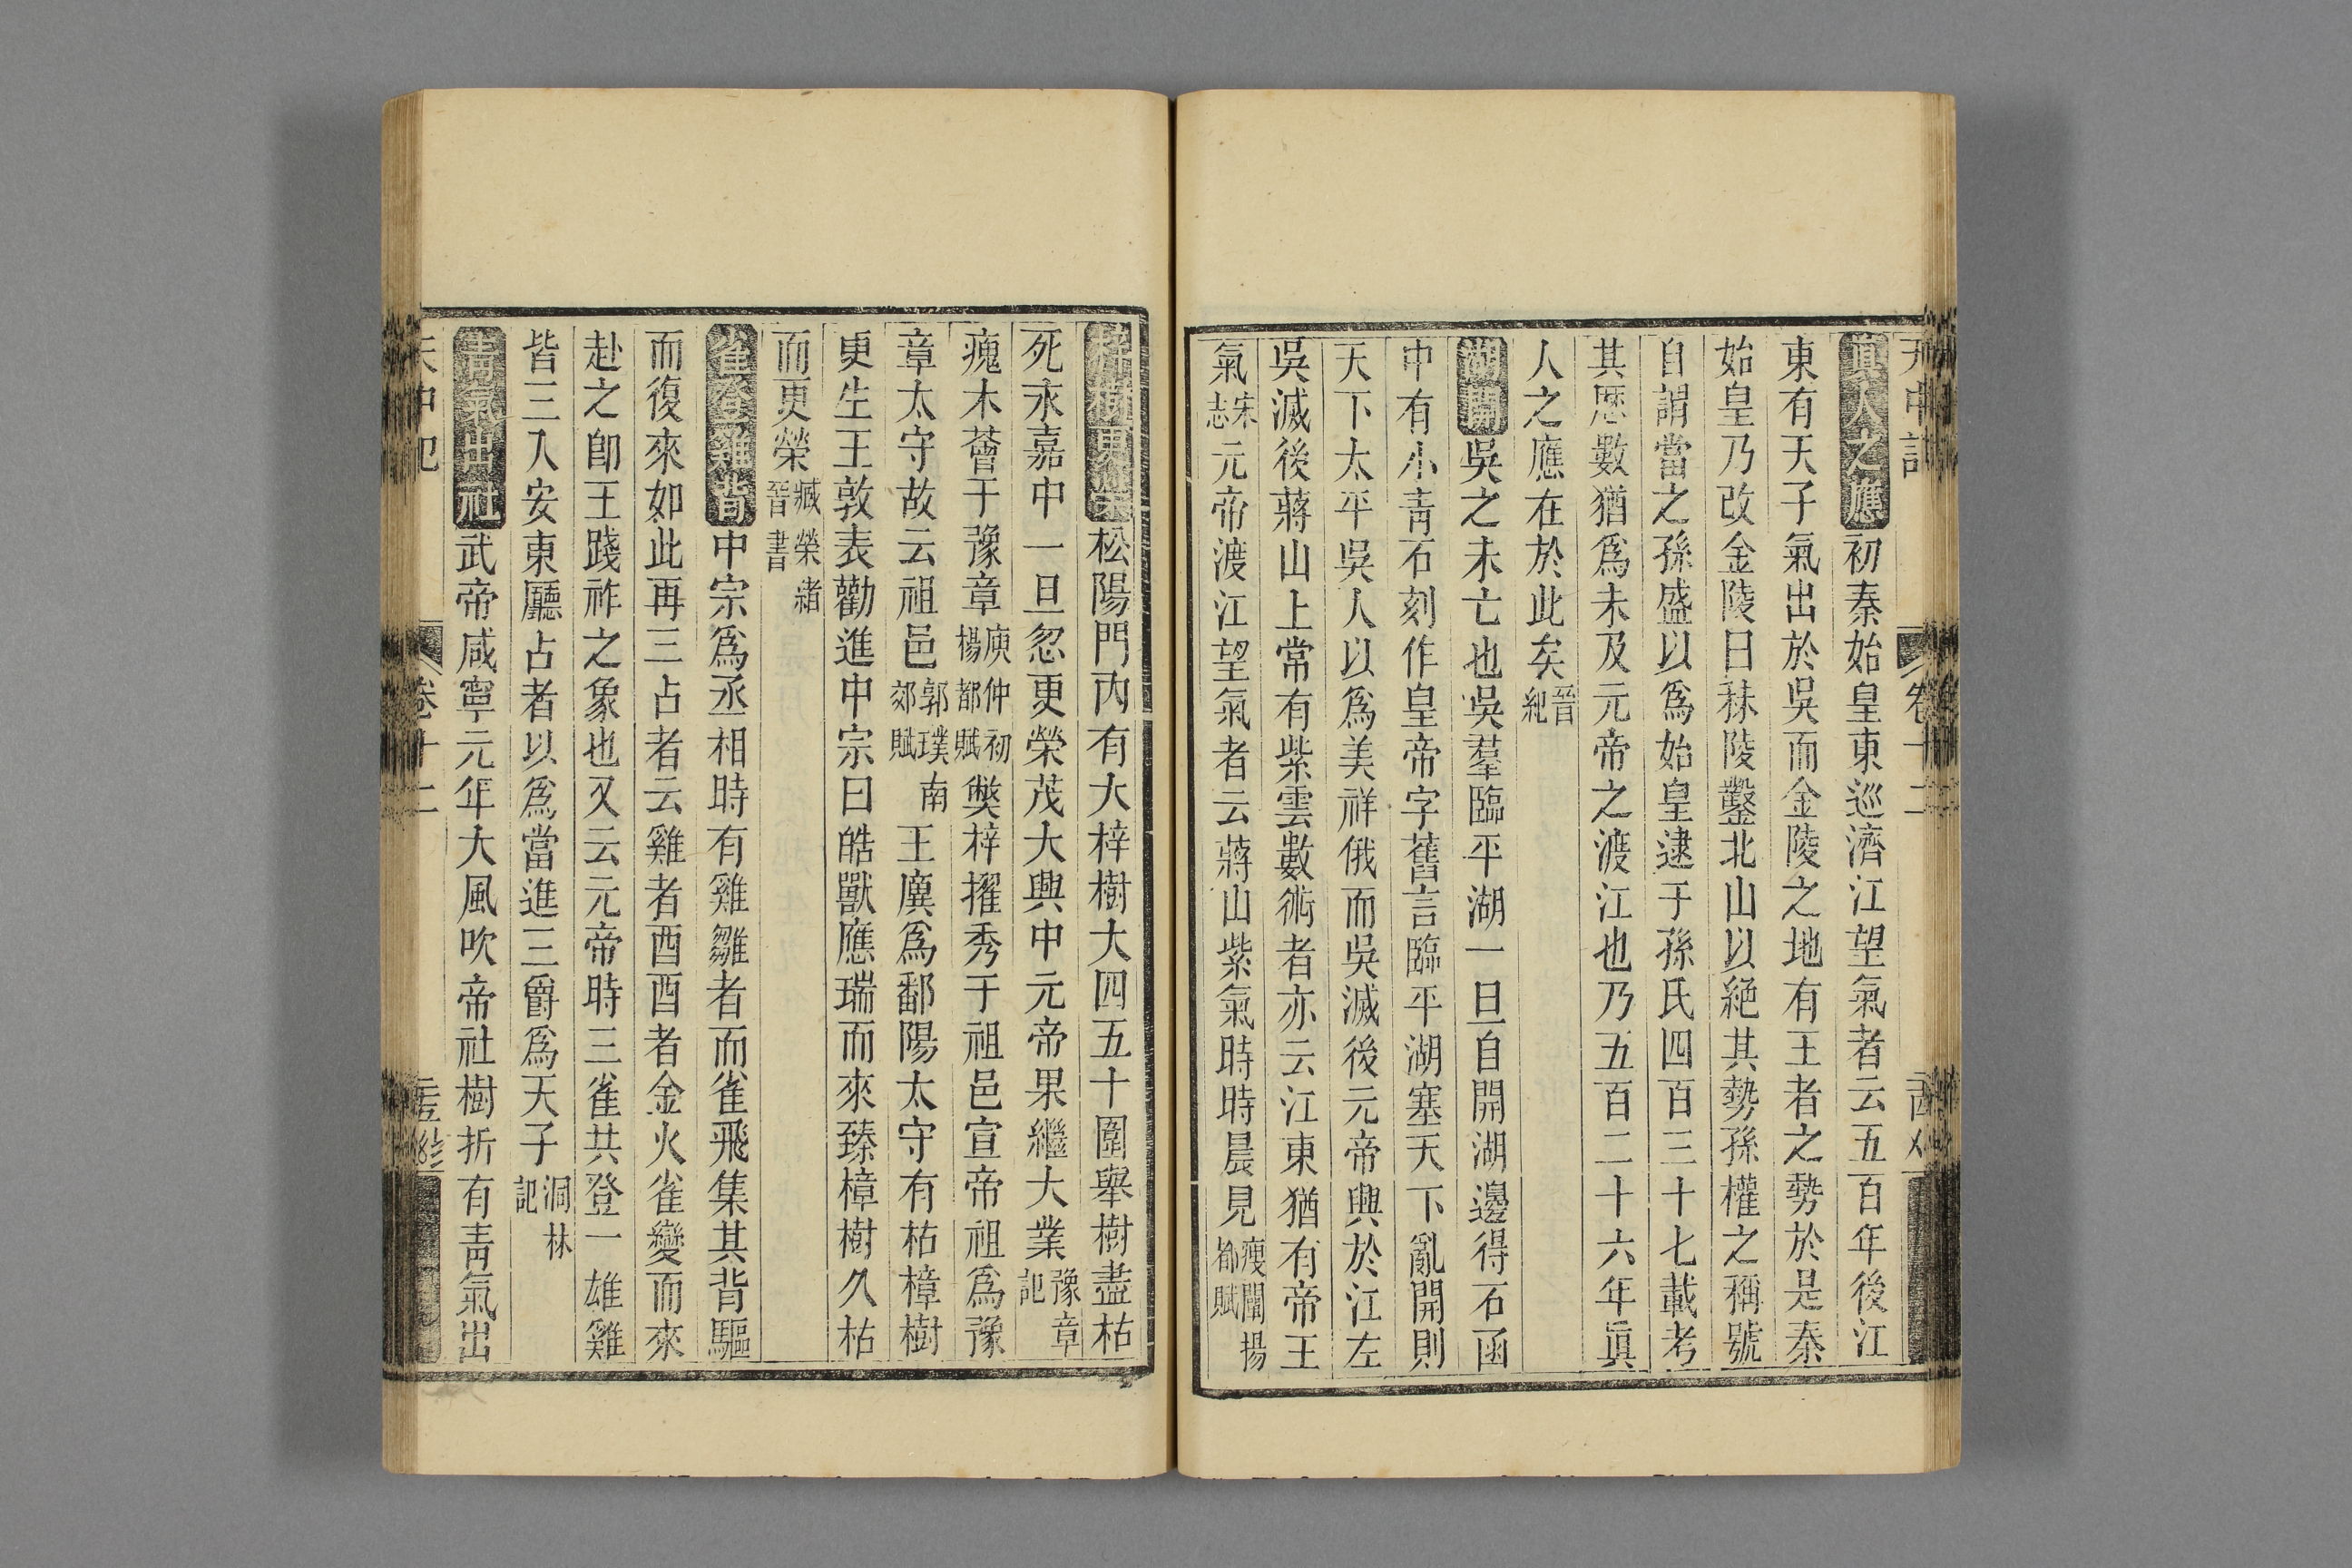 天中記 卷十二
眞人之應初秦始皇東巡濟江望氣者云五百年後江
東有天子氣出於吳而金陵之地有王者之勢於是秦
始皇乃改金陵曰秣陵鑿北山以絕其勢孫權之稱號
自謂當之孫盛以爲始皇逮于孫氏四百三十七載考
其歷數猶爲未及元帝之渡江也乃五百二十六年眞
人之應在於此矣晉紀
湖開吳之未亡也吳羣臨平湖一旦自開湖邊得石函
中有小靑石刻作皇帝字舊言臨平湖塞天下亂開則
天下太平吳人以爲美祥俄而吳滅後元帝興於江左
吳滅後蔣山上常有紫雲數術者亦云江東猶有帝王
氣宋志元帝渡江望氣者云蔣山紫氣時時晨見庾闡揚都賦
梓樹更榮松陽門內有大梓樹大四五十圍舉樹盡枯
死永嘉中一旦忽更榮茂大興中元帝果繼大業豫章記
瘣木薈于豫章庾仲初楊都賦獘梓擢秀于祖邑宣帝祖爲豫
章太守故云祖邑郭璞南郊賦王廙爲鄱陽太守有枯樟樹
更生王敦表勸進中宗曰皓獸應瑞而來臻樟樹久枯
而更榮臧榮緒晉書
雀登雞背中宗爲丞相時有雞雛者而雀飛集其背驅
而復來如此再三占者云雞者酉酉者金火雀變而來
赴之卽王踐祚之象也又云元帝時三雀共登一雄雞
皆三入安東廳占者以爲當進三爵爲天子洞林記
靑氣出社武帝咸寧元年大風吹帝社樹折有靑氣出
天中記 卷十二